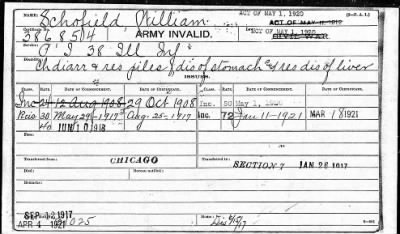 NAME Schofield, William ACT OF MAY 1, 1920
3868514 ARMY INVALID. ACT OF MAY 1, 1920 CIVIL WAR
Service, A, I 38 Ill Inf
Disability, Chdiarr & res piles & dis of stomach & res dis of liver
ISSUES.
CLASS. RATE. DATE OF COMMENCEMENT. DATE OF CERTIFICATE. CLASS. RATE. DATE OF COMMENCEMENT. DATE OF CERTIFICATE.
Inc 24 12 Aug 1908 29 Oct 1908 Inc. 50 May 1, 1920
Reis 30 May 29-1917 Aug-25-1917 Inc. 72 Jan 11-1921 MAR 18 1921
40 JUN 10 1918
Transferred from CHICAGO Transferred to SECTION 7 JAN 28 1917
Died Remarks
Remarks
SEP 12 1917
APR 4 1921